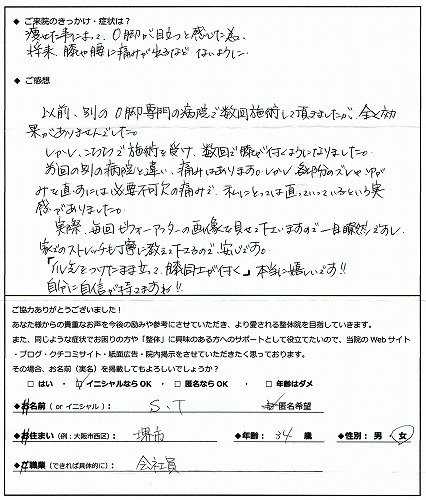 ◆ ご来院のきっかけ・症状は？
痩せた事によって、O脚が目立つと感じた為。
将来、膝や腰に痛みが出るなど ないように。
◆ ご感想
以前、別のO脚専門の病院で数回施術して頂きましたが、全く効
果がありませんでした。
しかし、こちらで施術を受け、数回で膝が付くようになりました。
前回の別の病院と違い、痛みはあります。しかし、部分のズレやゆが
みを直すには必要不可欠の痛みで、私にとっては直っていっているという実
感がありました。
実際、毎回ビフォーアフターの画像を見せて下さいますので一目瞭然ですし、
家でのストレッチも丁寧に教えて下さるので、安心です。
「かかとをつけたまま立って、膝同士が付く」本当に嬉しいです!!
自分に自信が持てますね!!
ご協力ありがとうございました！
あなた様からの貴重なお声を今後の励みや参考にさせていただき、より愛される整体院を目指していきます。
また、同じような症状でお困りの方や「整体」に興味のある方へのサポートとして役立てたいので、当院のWebサイト
・ブログ・クチコミサイト・紙面広告・院内掲示をさせていただきたく思っております。
その場合、お名前（実名）を掲載してもよろしいでしょうか？
□ はい ・ ☑ イニシャルならOK ・ □ 匿名ならOK ・ □ 年齢はダメ
◆お名前（or イニシャル）： S.T ☑匿名希望
◆お住まい（例：大阪市西区）： 堺市 ◆年齢： 34 歳 ◆性別： 男 ・ 女
◆ご職業（できれば具体的に）： 会社員